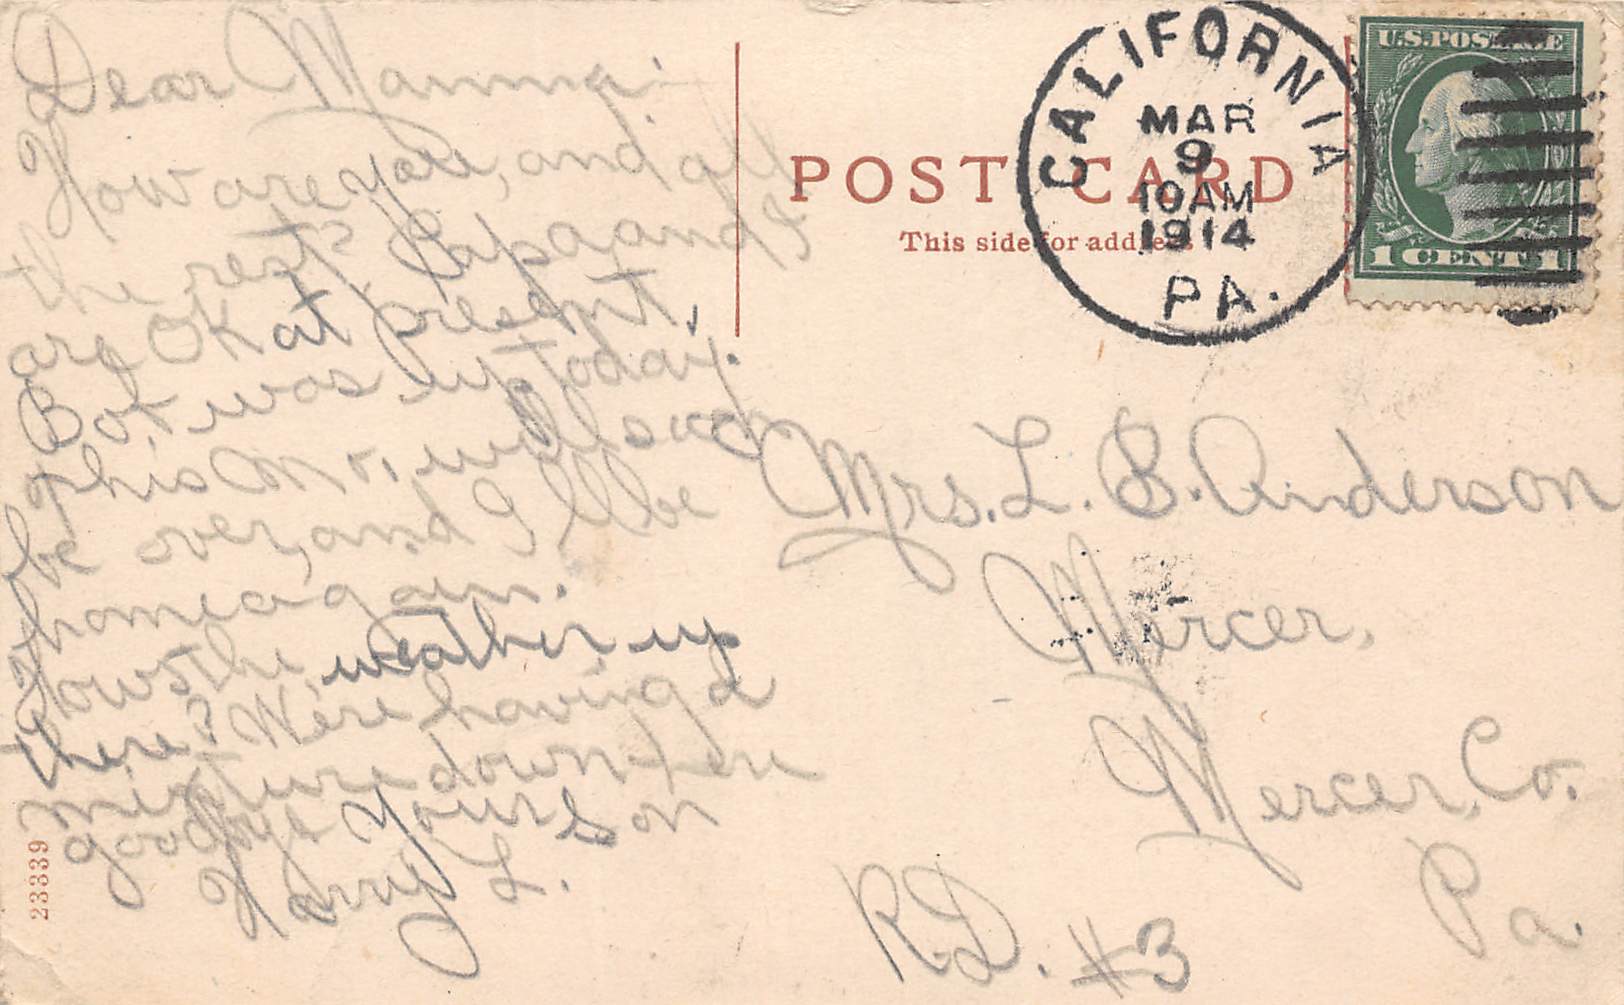 Dear Mamma:
How are you, and all
the rest? Papa and I
are OK at present,
Bot was up today.
this Mo. will soon
be over, and I'll be
home again.
Hows the weather up
there? We're having a
mixture down here
goodbye Your Son
Harry L.
23339
POST CARD
This side for address
CALIFORNIA
MAR
9
10 AM
1914
PA.
U.S. POSTAGE
1 CENT 1
Mrs. L. B. Anderson
Mercer,
Mercer, Co.
Pa.
R.D. #3